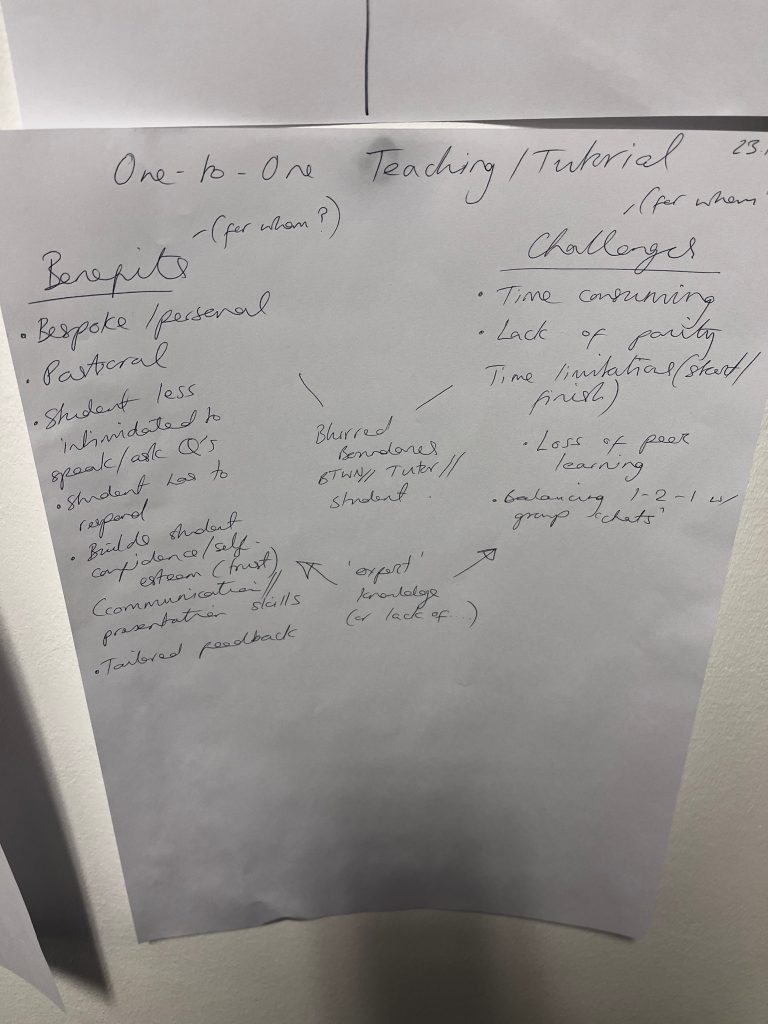 One-to-One Teaching/Tutorial
23.
-(for whom?)
(for whom
Benefits
• Bespoke/personal
• Pastoral
• Student less
intimidated to
speak/ask Q's
• Student has to
respond
• Builds student
confidence/self-
esteem (trust)
(communication//
presentation skills
• Tailored feedback
Blurred
Boundaries
BTWN// Tutor//
student.
'expert'
knowledge
(or lack of...)
Challenges
• Time consuming
• Lack of parity
Time limitations (start/
finish)
• Loss of peer
learning
• Balancing 1-2-1 w/
group 'chats'